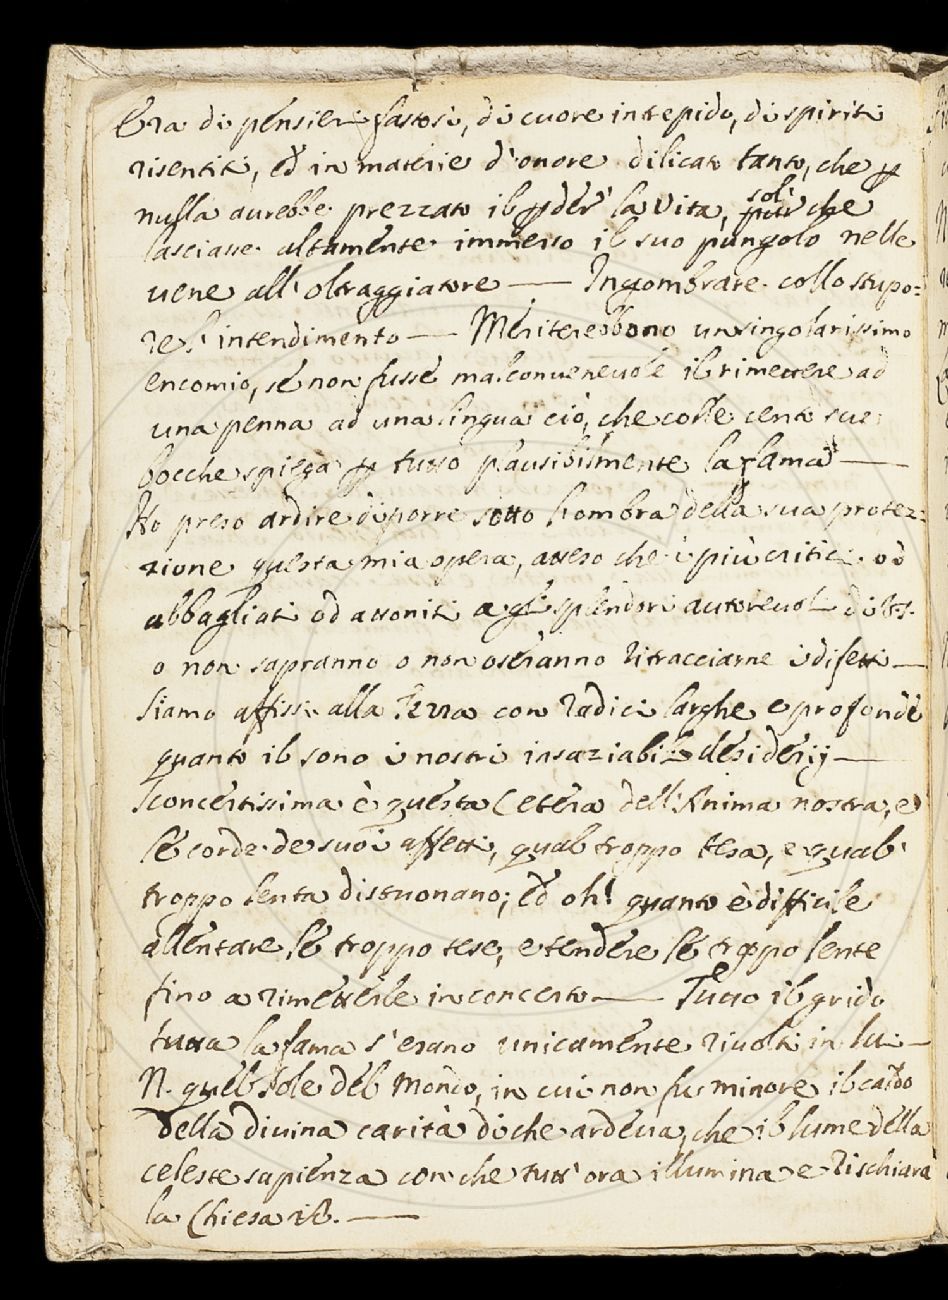 Era di pensieri fastosi, di cuore intrepido, di spiriti
risentiti, ed in materie d'onore dilicato tanto, che p
nulla aurebbe prezzato il pder' la Vita, sol' che
lasciasse altamente immerso il suo pungolo nelle
uene all'oltraggiatore — Ingombrare collo stupo=
re l'intendimento — Meriterebbono un singolarissimo
encomio, se non fusse mal conueneuole il rimettere ad
una penna ad una lingua ciò, che colle cento sue
bocche spiega p tutto plausibilmente la fama —
Ho preso ardire di porre sotto l'ombra della sua protez=
zione questa mia opera, atteso che i più critici od
abbagliati od attoniti agli splendori autoreuoli di
o non sapranno o non oseranno ritracciarne i difetti —
Siamo affissi alla Terra con radici larghe e profonde
quanto il sono i nostri insaziabili desiderij —
Sconcertissima è questa Cetera dell'Anima nostra, e
le corde de suoi affetti, qual troppo tesa, e qual'
troppo lenta dissuonano; ed oh! quanto è difficile
allentare le troppo tese, e tendere le troppo lente
fino a rimetterle in concerto — Tutto il grido
tutta la fama s'erano unicamente riuolti in lui —
N. quel Sole del Mondo, in cui non fu minore il caldo
della diuina carità di che ardeua, che il lume della
celeste sapienza con che tutt'ora illumina e rischiara
la Chiesa —